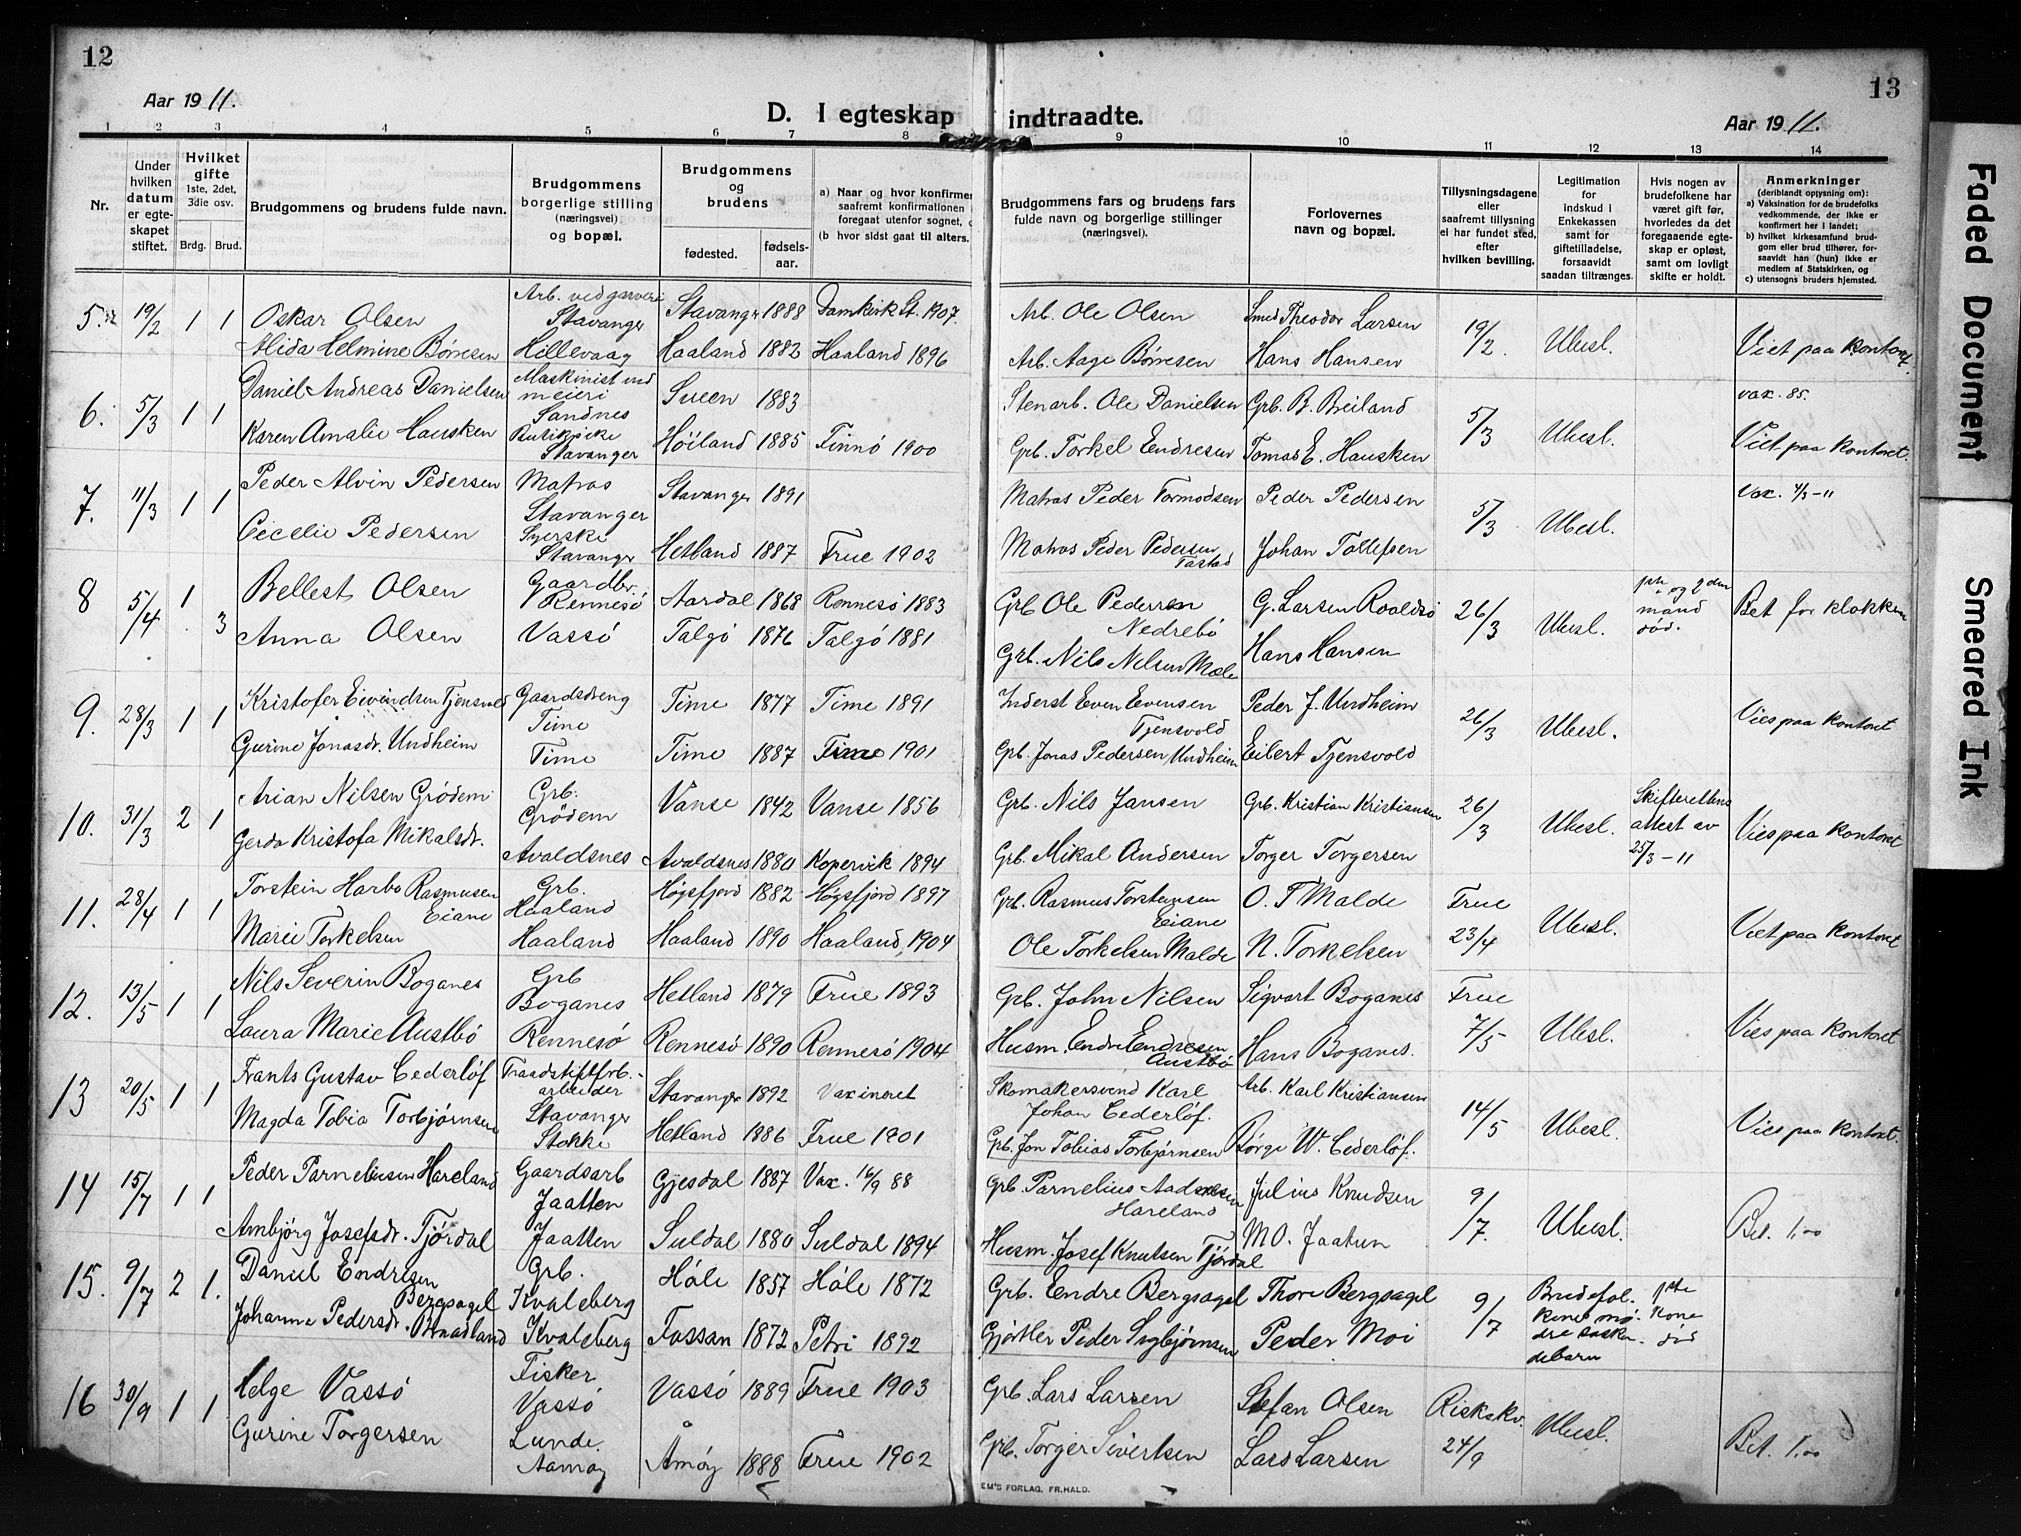 12
13
Aar 1911.
D. I egteskap indtraadte.
Aar 1911.
1 2 3 4 5 6 7 8 9 10 11 12 13 14
Nr.
Under hvilken datum er egteskapet stiftet.
Hvilket gifte 1ste, 2det, 3die osv.
Brdg. Brud.
Brudgommens og brudens fulde navn.
Brudgommens borgerlige stilling (næringsvei) og bopæl.
Brudgommens og brudens
fødested.
fødselsaar.
a) Naar og hvor konfirmer
saafremt konfirmationen
foregaat utenfor sognet,
(b hvor sidst gaat til alters.
Brudgommens fars og brudens fars fulde navn og borgerlige stillinger (næringsvei).
Forlovernes navn og bopæl.
Tillysningsdagene eller saafremt tillysning ei har fundet sted, efter hvilken bevilling.
Legitimation for indskud i Enkekassen samt for giftetilladelse, forsaavidt saadan tiltrænges.
Hvis nogen av brudefolkene har været gift før, hvorledes da det foregaaende egteskap er opløst, samt om lovligt skifte er holdt.
Anmerkninger (deriblandt opiysning om): a) Vaksination for de brudefolks vedkommende, der ikke er konfirmert her i landet; b) hvilket kirkesamfund brudgom eller brud tilhører, forsaavidt han (hun) ikke er medlem af Statskirken, og c) utensogns bruders hjemsted.
5. 19/2 1 1 Oskar Olsen Arb. ved Stavanger Stavanger 1888 Domkirk St. 1907. Arb. Ole Olsen Smed Theodor Larsen 19/2. Ubesl. Viet paa kontoret.
Alida Helmine Børresen Hillevaag Haaland 1882 Haaland 1896 Arb. Aage Børresen Hans Hansen
6. 5/3 1 1 Daniel Andreas Danielsen Maskinist ved meieri Sandnes Sueen 1883 Stenarb. Ole Danielsen Grb. B. Breiland 5/3 Ubesl. vax. 85.
Karen Amalie Hausken Butikpike Stavanger Höiland 1885 Finnö 1900 Grb. Torkel Endresen Tomas E. Hausken Viet paa kontoret.
7. 11/3 1 1 Peder Alvin Pedersen Matros Stavanger Stavanger 1891 Matros Peder Tormodsen Peder Pedersen 5/3 Ubesl. Vax. 4/3-11
Cecelie Pedersen Syerske Stavanger Hetland 1887 Frue 1902 Matros Peder Pedersen Tastad Johan Tollefsen
8 5/4 1 3 Bellest Olsen Gaardbr. Rennesö Aardal 1868 Rennesö 1883 Grb Ole Pedersen Nedrebö G. Larsen Roaldsö 26/3 Ubesl. og 2den mand död. Bet for klokken
Anna Olsen Vassö Talgö 1876 Talgö 1881 Grb. Nils Nilsen Mæle Hans Hansen
9. 28/3 1 1 Kristofer Eivindsen Tjensvold Gaardsdreng Time Time 1877 Time 1891 Inderst Even Evensen Tjensvold Peder J. Undheim 26/3 Ubesl. Vies paa kontoret
Gurine Jonasdr. Undheim Time Time 1887 Time 1901 Grb. Jonas Pedersen Undheim Eilert Tjensvold
10. 31/3 2 1 Arian Nilsen Grödem Grb. Grödem Vanse 1842 Vanse 1856 Grb. Nils Jansen Grb. Kristian Kristiansen 26/3 Ubesl. Skifterettens attest av 25/3-11 Vies paa kontoret
Gerda Kristofa Mikalsdr. Avaldsnes Avaldsnes 1880 Kopervik 1894 Grb. Mikal Andersen Torger Torgersen
11. 28/4 1 1 Torstein Harbo Rasmusen Eiane Grb. Haaland Högsfjord 1882 Högsfjord 1897 Grb. Rasmus Torsteinsen Eiane O. T Malde Frue 23/4 Ubesl. Viet paa kontoret
Marie Torkelsen Haaland Haaland 1890 Haaland 1904 Ole Torkelsen Malde N. Torkelsen
12. 13/5 1 1 Nils Severin Boganes Grb Boganes Hetland 1879 Frue 1893 Grb. John Nilsen Sigvart Boganes Frue 7/5 Ubesl. Vies paa kontoret
Laura Marie Austbö Rennesö Rennesö 1890 Rennesö 1904 Husm. Endre Endresen Austbö Hans Boganes.
13 20/5 1 1 Frants Gustav Cederlöf Traadstiftfbr.-arbeider Stavanger Stavanger 1892 Vaxineret Skomakersvend Karl Johan Cederlöf. Arb. Karl Kristiansen 14/5 Ubesl. Vies paa kontoret.
Magda Tobia Torbjørnsen Stokke Hetland 1886 Frue 1901 Grb. Jon Tobias Torbjørnsen Börge W. Cederlöf.
14 15/7 1 1 Peder Parneliusen Hareland Gaardsarb Jaatten Gjesdal 1887 Vax. 16/9 88 Grb. Parnelius Aadnesen Hareland Julius Knudsen 9/7. Ubesl. Bet. 1,00
Ambjörg Josefsdr. Tjördal Jaatten Suldal 1880 Suldal 1894 Husm. Josef Knutsen Tjördal M O. Jaatun
15. 9/7 2 1. Daniel Endresen Bergsagel Grb. Kvaleberg Höle 1857 Höle 1872 Grb. Endre Bergsagel Thore Bergsagel 9/7 Brudefolkene mødre söskendebarn 1ste kone död
Johanne Pedersdr. Braadland Kvaleberg Fossan 1872 Petri 1892 Gjørtler Peder Sigbjørnsen Peder Moi
16 30/9 1 1 Helge Vassö Fisker Vassö Vassö 1889 Frue 1903 Grb. Lars Larsen Stefan Olsen Riskekv. 24/9 Ubesl. Bet. 1,00
Gurine Torgersen Lunde. Aamöy Åmöy 1888 Frue 1902 Grb. Torger Sivertsen Lars Larsen
EM'S FORLAG, FR.HALD.
Faded Document
Smeared Ink